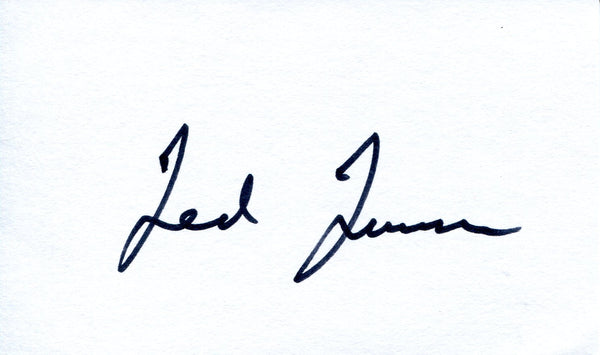 Ted Turner